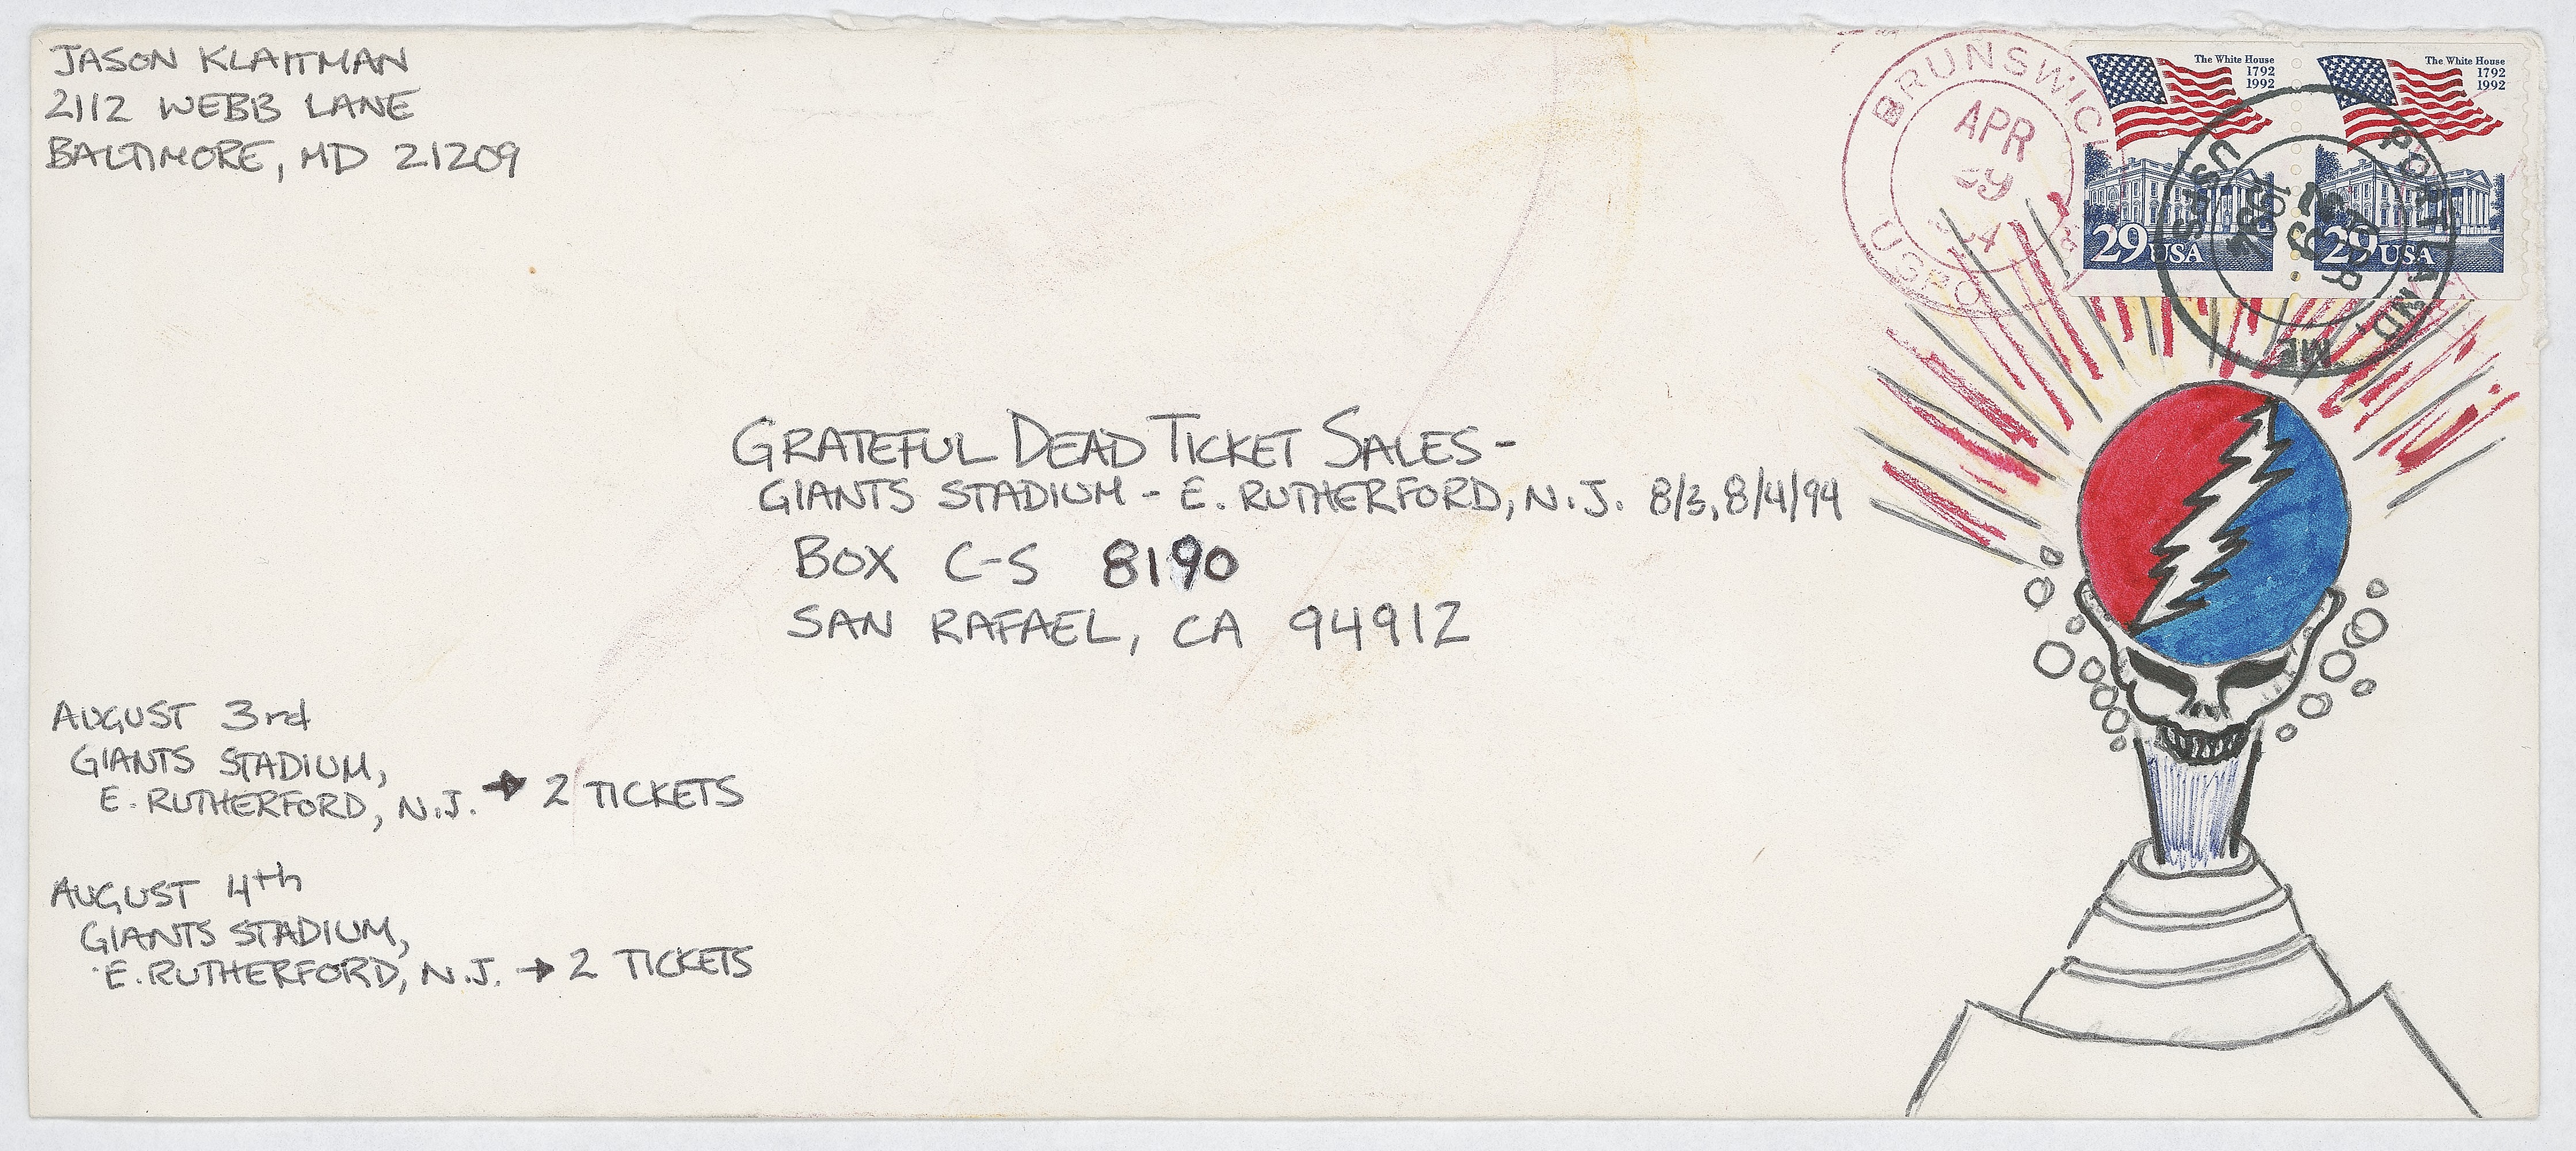 JASON KLAITMAN
2112 WEBB LANE
BALTIMORE, MD 21209
BRUNSWICK
APR
USPO
The White House
1792
1992
29 USA
The White House
1792
1992
29 USA
PORTLAND, ME
USPS
GRATEFUL DEAD TICKET SALES-
GIANTS STADIUM - E. RUTHERFORD, N.J. 8/3, 8/4/94
BOX C-S 8190
SAN RAFAEL, CA 94912
AUGUST 3rd
GIANTS STADIUM,
E. RUTHERFORD, N.J. → 2 TICKETS
AUGUST 4th
GIANTS STADIUM,
E. RUTHERFORD, N.J. → 2 TICKETS